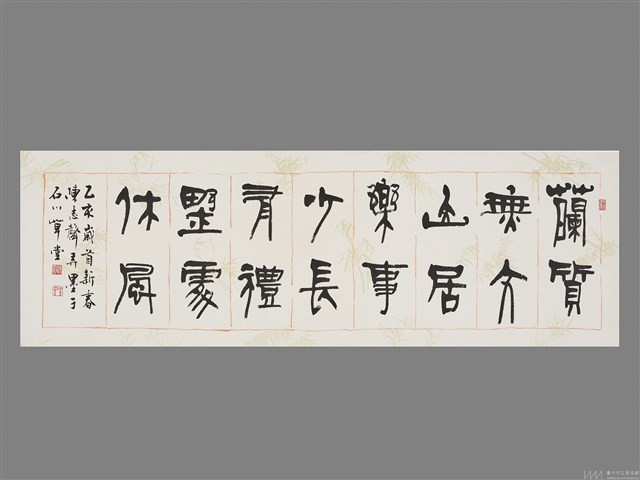 蘭質
無方
山居
樂事
少長
有禮
墅處
休風
乙亥歲首新春
陳志聲弄墨于
石川草堂